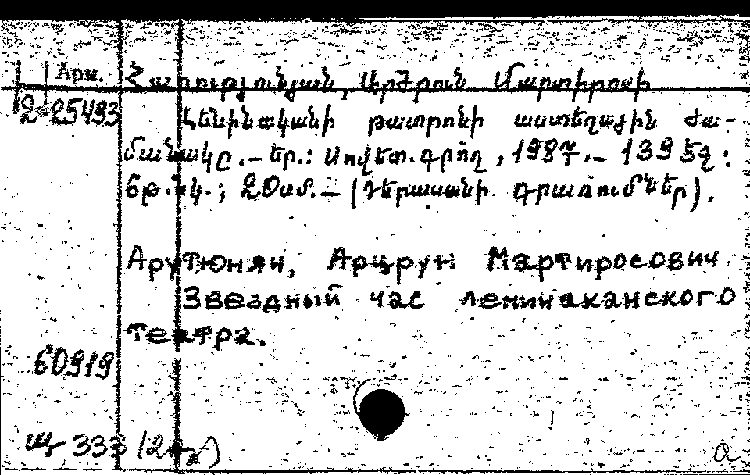 Арм. Հարությունյան, Արծրուն Մարտիրոսի
2-25493 Լենինականի թատրոնի աստեղային ժա-
մանակը. - Եր.: Սովետ. գրող, 1987. - 139 էջ:
6 թ. նկ.; 20սմ. - (Դերասանի գրառումներ).
Арутюнян, Арцрун Мартиросович
Звездный час ленинаканского
театра.
60919
Щ 333
a